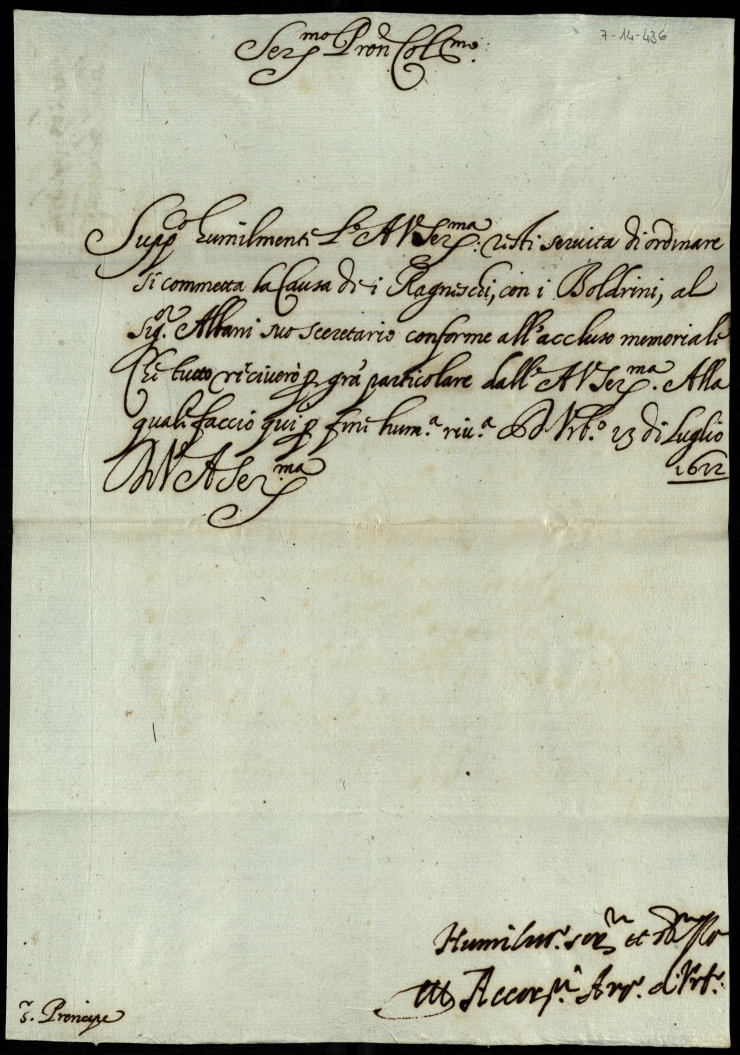 7-14-436
Ser.mo Pron Col.mo
Supp.co humilmente L'A V Ser.ma resti servita di ordinare
si commetta la Causa de i Ragneschi, con i Boldrini, al
Sig.or Albani suo secretario conforme all'accluso memoriale
Che tutto riceverò p gra particolare dall'A V Ser.ma. Alla
quale faccio qui p fine hum.a riu.a D'Urb.o 23 di Luglio
1622
D V A Ser.ma
Humiliss.o ser.re et
Arc. d'Urb.o
S. Prencipe